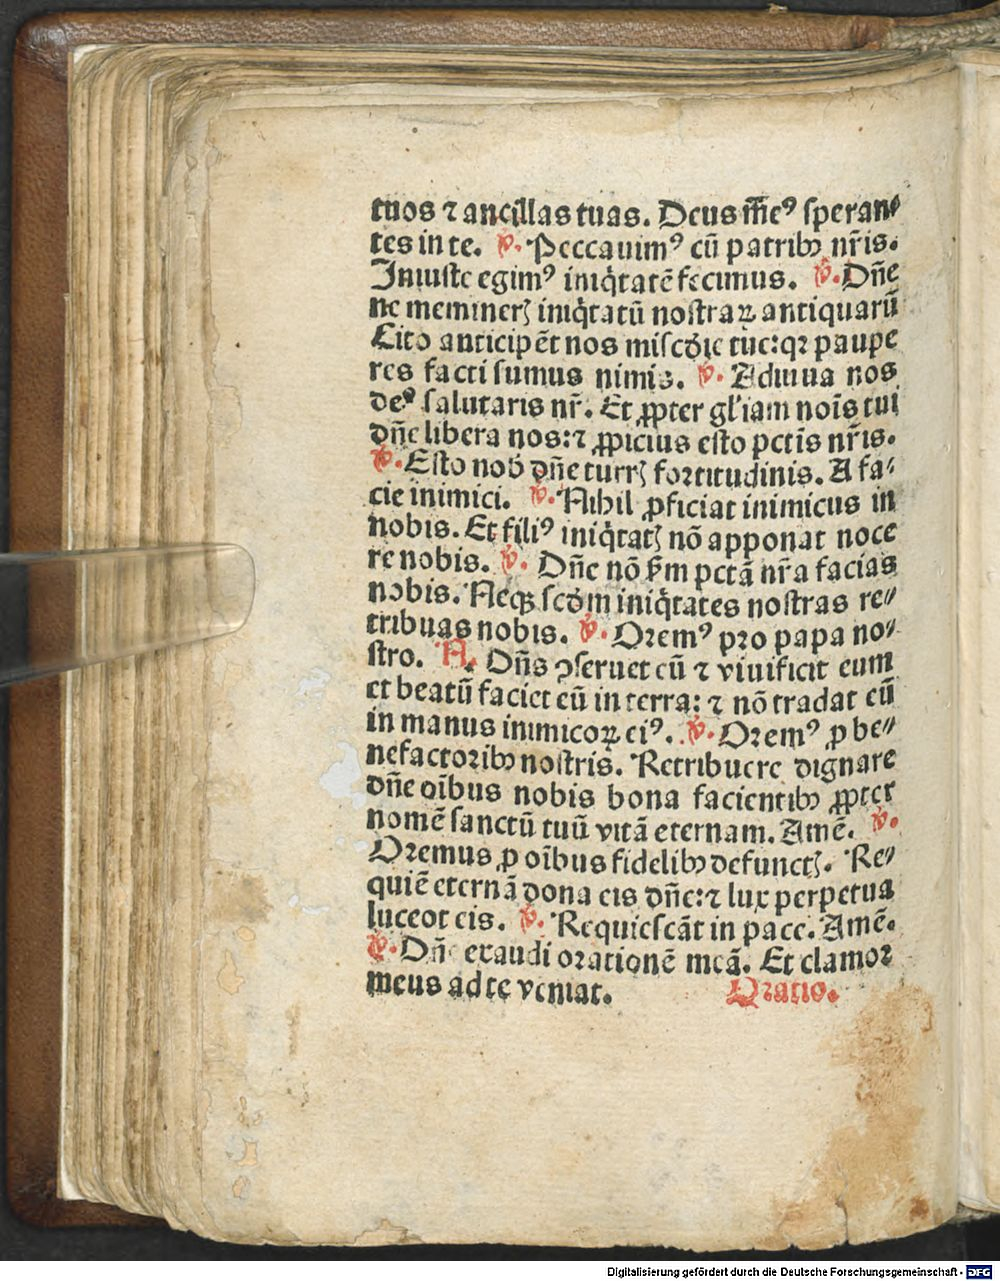 tuos ⁊ ancillas tuas. Deus meꝰ speran⸗
tes in te. ℣. Peccauimꝰ cū patribꝫ nr̄is.
Iniuste egimꝰ iniq̇tatē fecimus. ℣. Dn̄e
ne memineris iniq̇tatū nostraꝝ antiquarū
Cito anticipēt nos misc̄die tue: qꝛ paupe
res facti sumus nimis. ℣. Adiuua nos
deꝰ salutaris nr̄. Et ꝓpter gl'iam nois̄ tui
dn̄e libera nos: ⁊ ꝓpicius esto pctis̄ nr̄is.
℣. Esto nob̄ dn̄e turrꝭ fortitudinis. A fa⸗
cie inimici. ℣. Nihil ꝓficiat inimicus in
nobis. Et filiꝰ iniq̇tatꝭ nō apponat noce
re nobis. ℣. Dn̄e nō ẜm pctā nr̄a facias
nobis. Neqꝫ scd̄m iniq̇tates nostras re⸗
tribuas nobis. ℣. Oremꝰ pro papa no⸗
stro. ℟. Dn̄s ꝯseruet eū ⁊ viuificit eum
et beatū faciet eū in terra: ⁊ nō tradat eū
in manus inimicoꝝ eiꝰ. ℣. Oremꝰ ꝓ be⸗
nefactoribꝫ nostris. Retribuere dignare
dn̄e oib̄us nobis bona facientibꝫ ꝓpter
nomē sanctū tuū vitā eternam. Amē. ℣.
Oremus ꝓ oib̄us fidelibꝫ defunctꝭ. Re⸗
quiē eternā dona eis dn̄e: ⁊ lux perpetua
luceot eis. ℣. Requiescāt in pace. Amē.
℣. Dn̄e exaudi orationē meā. Et clamor
meus ad te veniat. Oratio.
Digitalisierung gefördert durch die Deutsche Forschungsgemeinschaft - DFG